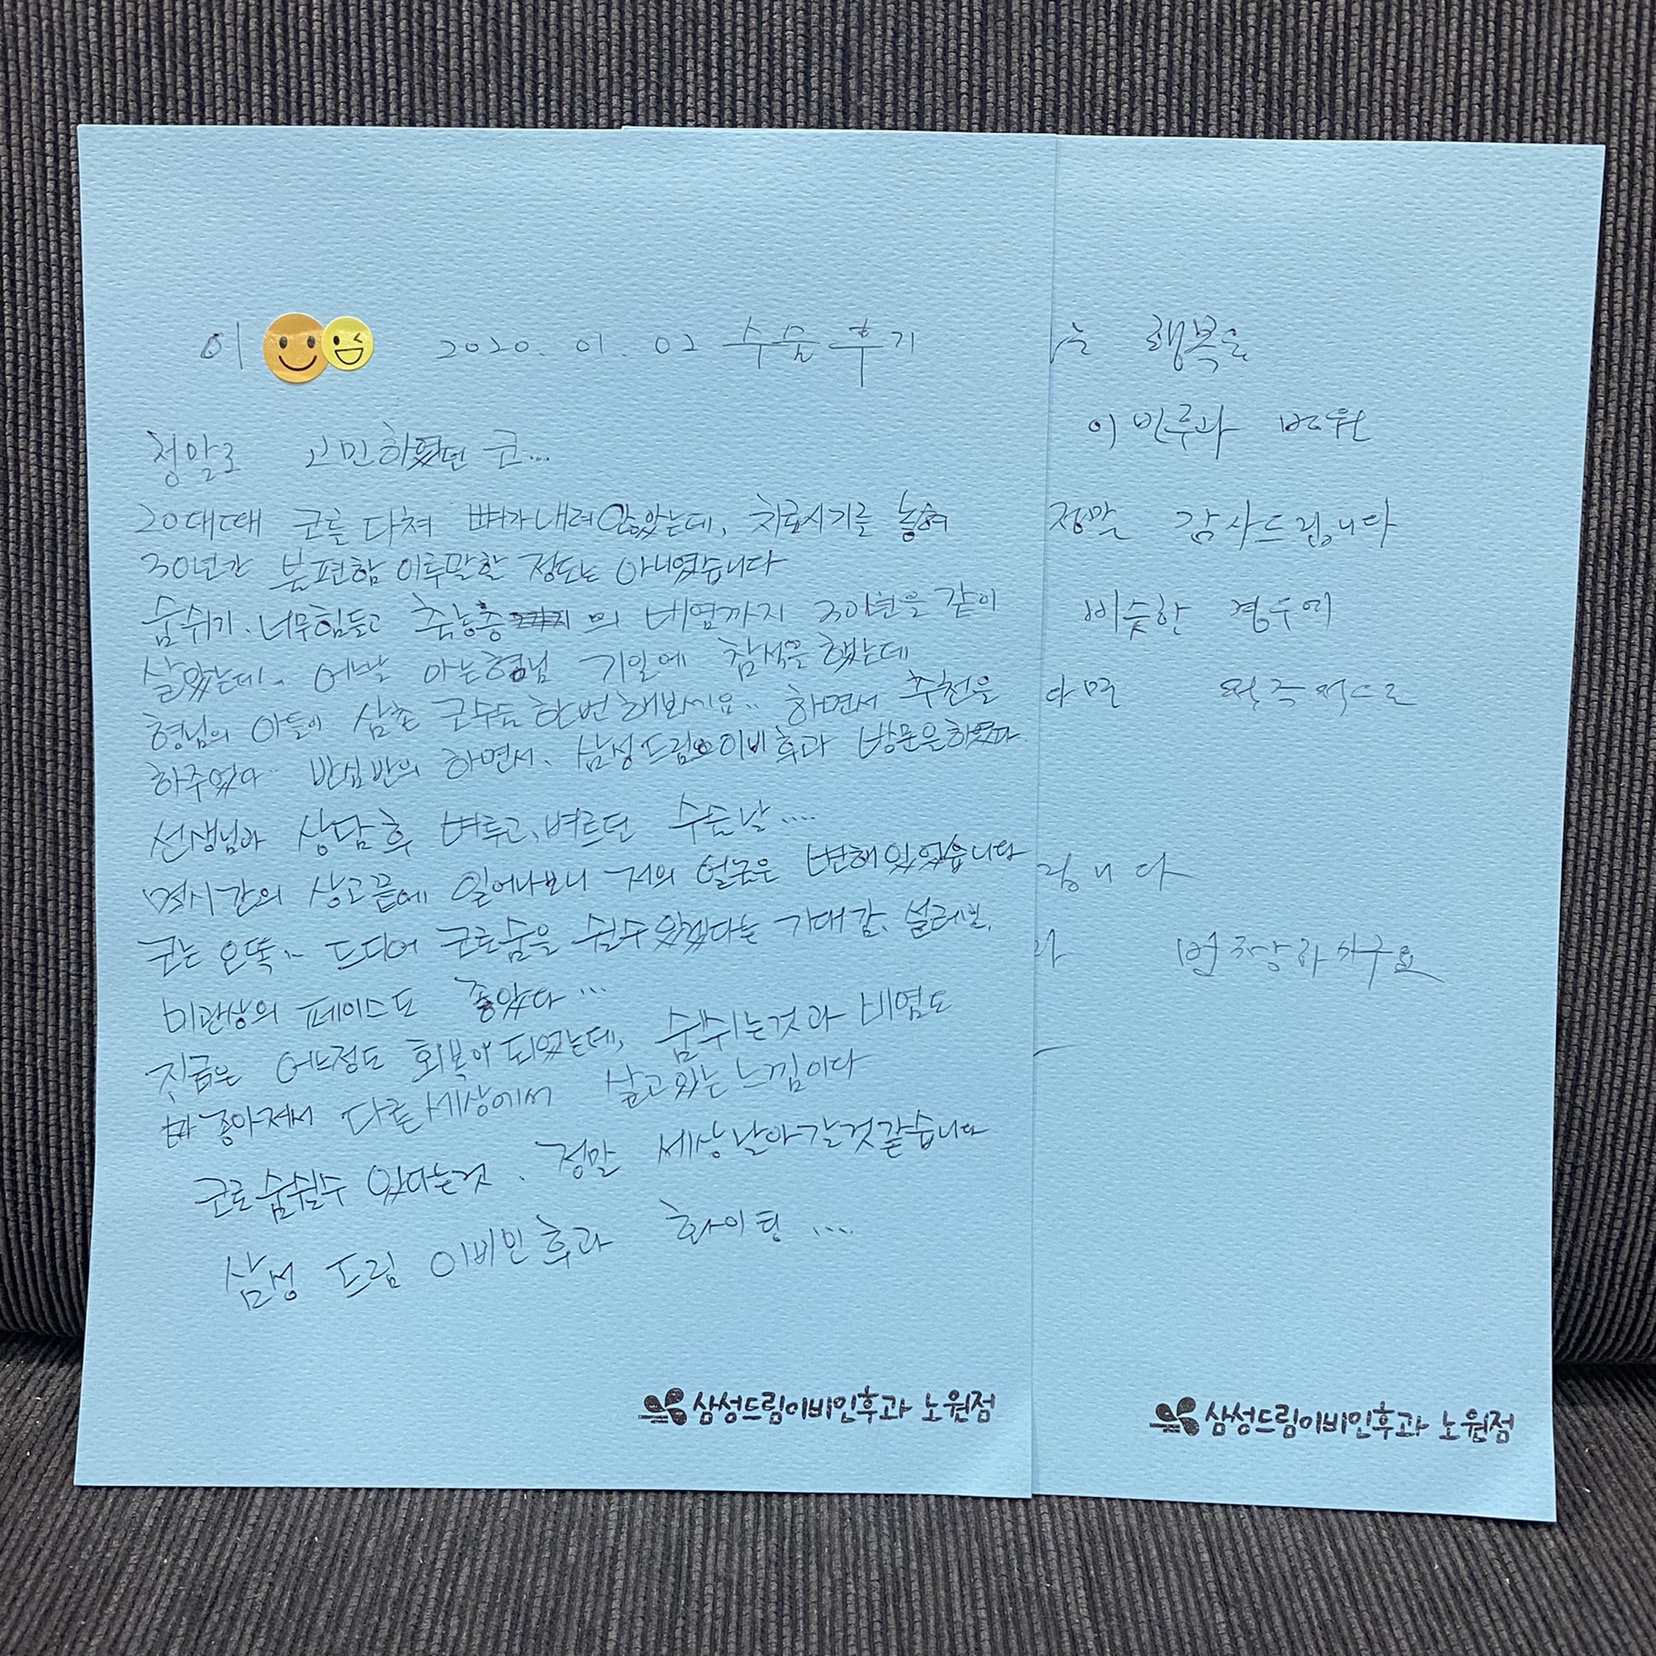 이 2020. 01. 02 수술 후기
정말로 고민하였던 코...
20대때 코를 다쳐 뼈가 내려앉았는데, 치료시기를 놓혀
30년간 불편함 이루말할 정도는 아니였습니다
숨쉬기. 너무힘들고 축농증 의 비염까지 30년을 같이
살았는데. 어느날 아는형님 기일에 참석을 했는데
형님의 아들이 삼촌 코수술 한번 해보세요.. 하면서 추천을
하주었다.. 반심반의 하면서. 삼성드림 이비후과 방문을하였다
선생님과 상담후 벼루고, 벼르던 수술날....
몇시간의 상고끝에 일어나보니 저의 얼굴은 변해있었습니다
코는 오똑.. 드디어 코로숨을 쉴수있겠다는 기대감. 설레임.
미관상의 페이스도 좋았다...
짓금은 어느정도 회복이 되었는데, 숨쉬는것과 비염도
좋아져서 다른세상에서 살고있는느낌이다
코로숨쉴수 있다는것. 정말 세상날아갈것같습니다
삼성 드림 이비인후과 화이팅...
삼성드림이비인후과 노원점
는 행복을
이빈후과 병원
정말 감사드립니다
비슷한 경우에
적극적으로
립니다
번창하시구요
삼성드림이비인후과 노원점